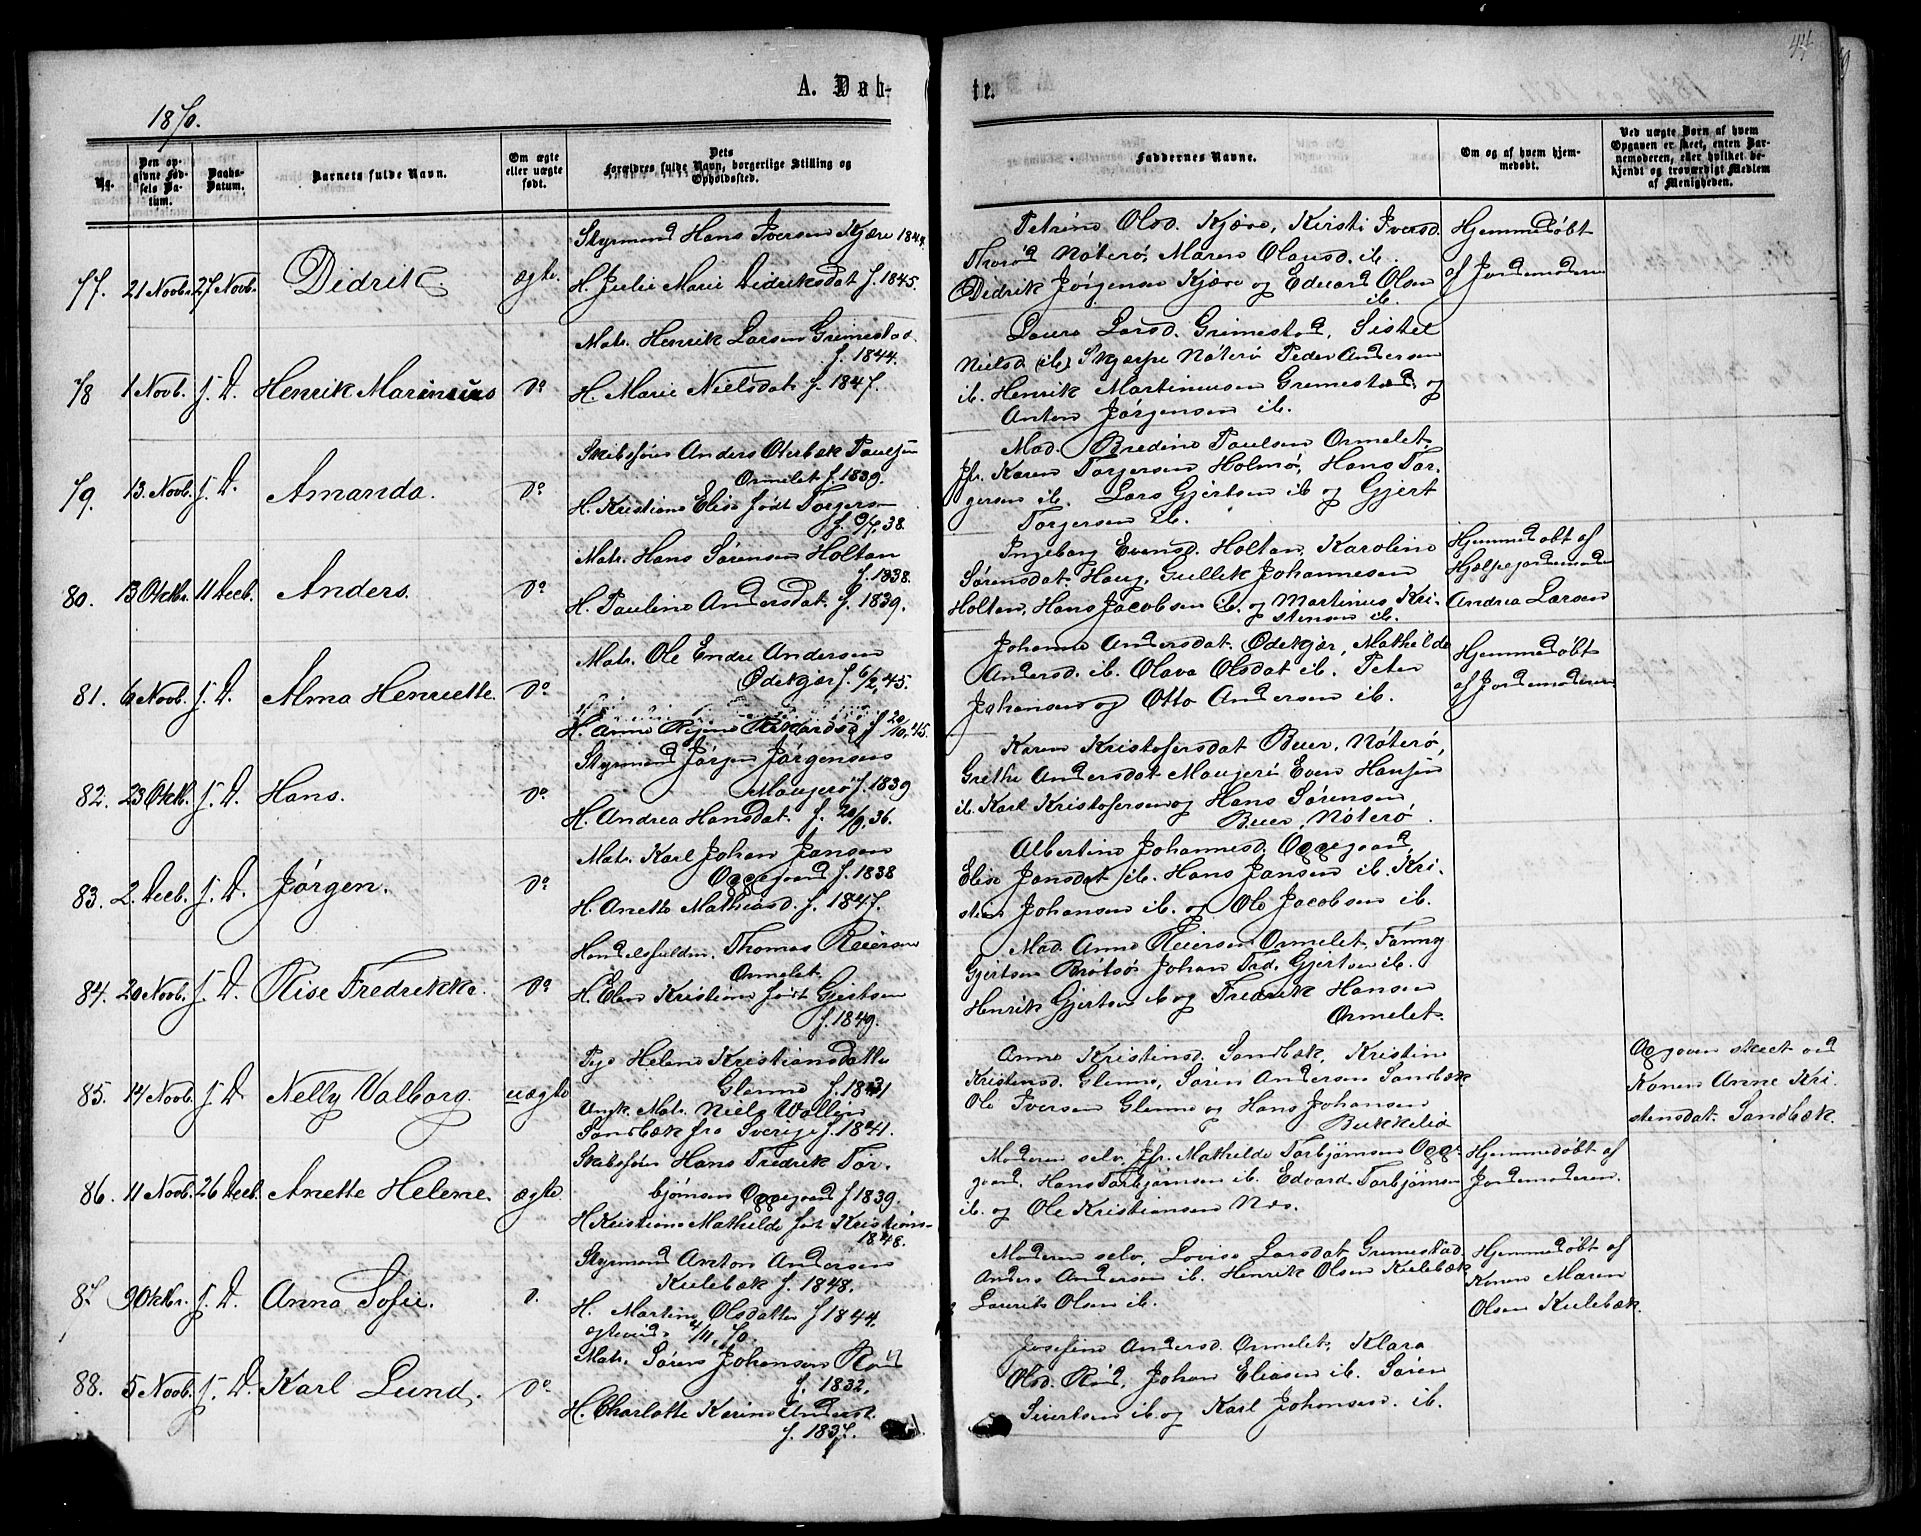 44
1870.
A. Døb-
te.
No.
Den op-
givne Fød-
sels Da-
tum.
Daabs-
Datum.
Barnets fulde Navn.
Om ægte
eller uægte
født.
Dets
Forældres fulde Navn, borgerlige Stilling og
Opholdssted.
Faddernes Navne.
Om og af hvem hjem-
medøbt.
Ved uægte Børn af hvem
Opgaven er skeet, enten Bar-
nemoderen, eller hvilket be-
kjendt og troværdigt Medlem
af Menigheden.
77. 21 Novb. 27 Novb. Didrik. ægte.
Styrmand Hans Iversen Kjære 1848.
H. Julie Marie Didriksdat f. 1845.
Petrine Olsd. Kjære, Kirsti Iversd.
Thorød Nøterø, Maren Olausd. ib.
Didrik Jørgensen Kjære og Edvard Olsen
ib.
Hjemmedøbt
af Jordemoderen
78 1 Novb. s. D. Henrik Marinius do
Matr. Henrik Larsen Grimestad
f. 1844.
H. Marie Nielsdat f. 1847.
Laura Larsd. Grimestad, Sistel
Nielsd (ib) Skjærpe Nøterø Peder Andersen
ib. Henrik Martinusen Gremestad og
Anton Jørgensen ib.
79. 13. Novb. s. D. Amanda. do
Skibsfører Anders Oterbæk Paulsen
Ormelet f. 1839.
H. Kristiane Elise født Torgersen
f. 9/7, 38.
Mad. Bredine Paulsen Ormelet,
Jfr. Karen Torgersen Holmø, Hans Tor-
gersen ib. Lars Gjertsen ib og Gjert
Torgersen ib.
80. 13 Oktbr. 11 Decb. Anders. do
Matr. Hans Sørensen Holtan
f. 1838.
H. Pauline Andersdat f. 1839.
Ingeborg Evensd. Holtan, Karoline
Sørensdat. Haug, Gullik Johannesen
Holtan, Hans Jacobsen ib. og Martinus Kri-
stensen ib.
Hjemmedøbt af
Hjelpejordemoder
Andrea Larsen
81. 6 Novb. s. D. Alma Henriette. do
Matr. Ole Endre Andersen
Ødekjær f. 6/2, 45.
H. Anne Regine Rikardsd f 20/10, 45.
Johanne Andersdat. Ødekjær, Mathilde
Andersd. ib. Olava Olsdat ib. Peter
Johansen og Otto Andersen ib.
Hjemmedøbt
af Jordemoderen
82. 23 Oktb. s. D. Hans. do
Styrmand Jørgen Jørgensen
Maugerø f. 1839
H. Andrea Hansdat. f. 20/9, 36.
Karen Kristofersdat Buer, Nøterø,
Grethe Andersdat Maugerø Even Hansen
ib. Karl Kristofersen og Hans Sørensen
Buer, Nøterø.
83. 2. Decb. s. D. Jørgen. do
Matr. Karl Johan Jansen
Oggegaard f. 1838
H. Anette Mathiasd. f. 1847.
Albertine Johannesd. Oggegaard,
Elise Jansdat ib. Hans Jansen ib. Kri-
stian Johansen ib. og Ole Jacobsen ib.
84. 20 Novb. s. D. Rise Fredrikke. do
Handelsfuldm. Thomas Reiersen
Ormelet.
H. Elen Kristiane født Gjertsen
f. 1849.
Mad. Anne Reiersen Ormelet, Fanny
Gjertsen Brøtsø Johan Frd. Gjertsen ib.
Henrik Gjertsen ib og Fredrik Hansen
Ormelet.
85. 14 Novb. s. D. Nelly Valborg. uægte
Pige Helene Kristiansdatter
Glenne f. 1841
Ungk. Matr. Niels Wallin
Sandbæk fra Sverige f. 1841.
Anne Kristensd. Sandbæk, Kristine
Kristensd. Glenne, Søren Andersen Sandbæk
Ole Iversen Glenne og Hans Johansen
Bukkelid
Opgaven skeet ved
Konen Anne Kri-
stensdat. Sandbæk.
86. 11 Novb. 26 Decb. Anette Helene. ægte
Skibsfører Hans Fredrik Tor-
bjørnsen Oggegaard f. 1839.
H Kristiane Mathilde født Kristians-
1848.
Moderen selv, Jfr. Mathilde Torbjørnsen Ogge-
gaard. Hans Torbjørnsen ib. Edvard Torbjørnsen
ib. og Ole Kristiansen Næs.
Hjemmedøbt af
Jordemoderen.
87 9 Oktbr. s. D. Anna Sofie. do
Styrmand Anton Andersen
Kulebæk f. 1848.
H. Martine Olsdatter f 1844.
ægteviede 4/11, 70.
Moderen selv, Lovise Larsdat. Grimestad,
Anders Andersen ib. Henrik Olsen Kulebæk
Laurits Olsen ib.
Hjemmedøbt af
Konen Maren
Olsen Kulebæk.
88. 5 Novb. s. D. Karl Lund. do
Matr. Søren Johansen Rød
f. 1832.
H. Charlotte Karine Andersd.
f. 1837.
Josefine Andersd. Ormelet, Klara
Olsd. Rød, Johan Eliasen ib. Søren
Sivertsen ib. og Karl Johansen ib.